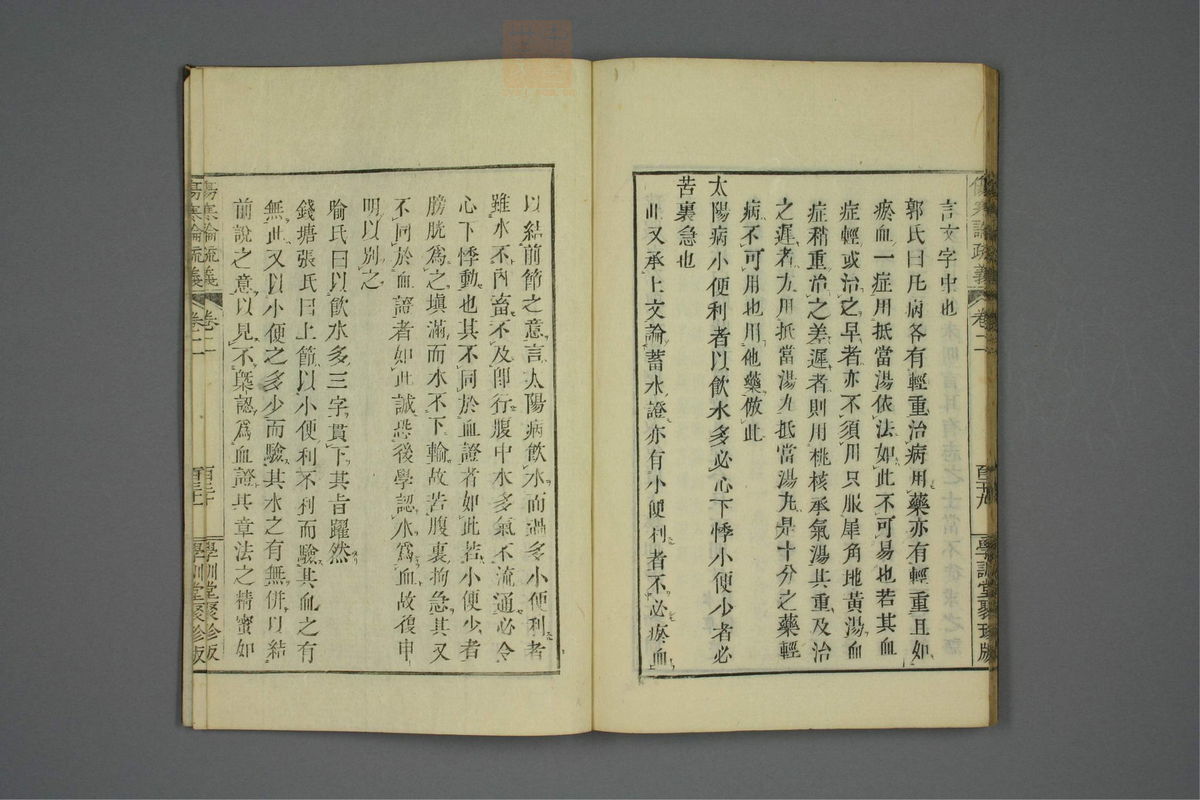 傷寒論疏義 卷二 學訓堂聚珍版
言文字中也
郭氏曰凡病各有輕重治病用藥亦有輕重且如
瘀血一症用抵當湯依法如此不可易也若其血
症輕或治之早者亦不須用只服犀角地黃湯血
症稍重治之差遲者則用桃核承氣湯其重及治
之遲者方用抵當湯丸抵當湯丸是十分之藥輕
病不可用也用他藥倣此
太陽病小便利者以飲水多必心下悸小便少者必
苦裏急也
此又承上文論蓄水證亦有小便利者不必瘀血
以結前節之意言太陽病飲水而過多小便利者
雖水不內畜不及卽行腹中水多氣不流通必令
心下悸動也其不同於血證者如此若小便少者
膀胱爲之填滿而水不下輸故苦腹裏拘急其又
不同於血證者如此誠恐後學認水爲血故復申
明以別之
喻氏曰以飲水多三字貫下其旨躍然
錢塘張氏曰上節以小便利不利而驗其血之有
無此又以小便之多少而驗其水之有無併以結
前說之意以見不槩認爲血證其章法之精蜜如
傷寒論疏義 卷二 學訓堂聚珍版